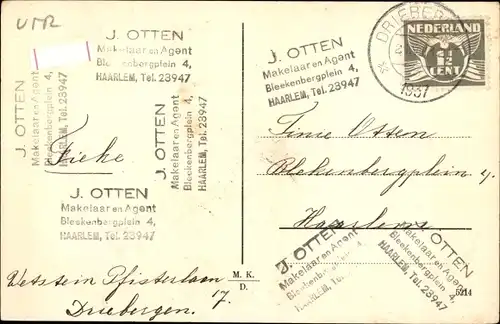 UTR
J. OTTEN
Makelaar en Agent
Bleekenbergplein 4,
HAARLEM, Tel. 23947
J. OTTEN
Makelaar en Agent
Bleekenbergplein 4,
HAARLEM, Tel. 23947
J. OTTEN
Makelaar en Agent
Bleekenbergplein 4,
HAARLEM, Tel. 23947
J. OTTEN
Makelaar en Agent
Bleekenbergplein 4,
HAARLEM, Tel. 23947
Fiche
J. OTTEN
Makelaar en Agent
Bleekenbergplein 4,
HAARLEM, Tel. 23947
Wetstein Pfisterlaan
17.
Driebergen.
M. K.
D.
DRIEBER
1937
NEDERLAND
1½
CENT
Tinie Otten
Blekenbergplein 4
Haarlem
J. OTTEN
Makelaar en Agent
Bleekenbergplein 4,
HAARLEM, Tel. 23947
J. OTTEN
Makelaar en Agent
Bleekenbergplein 4,
HAARLEM, Tel. 23947
5214